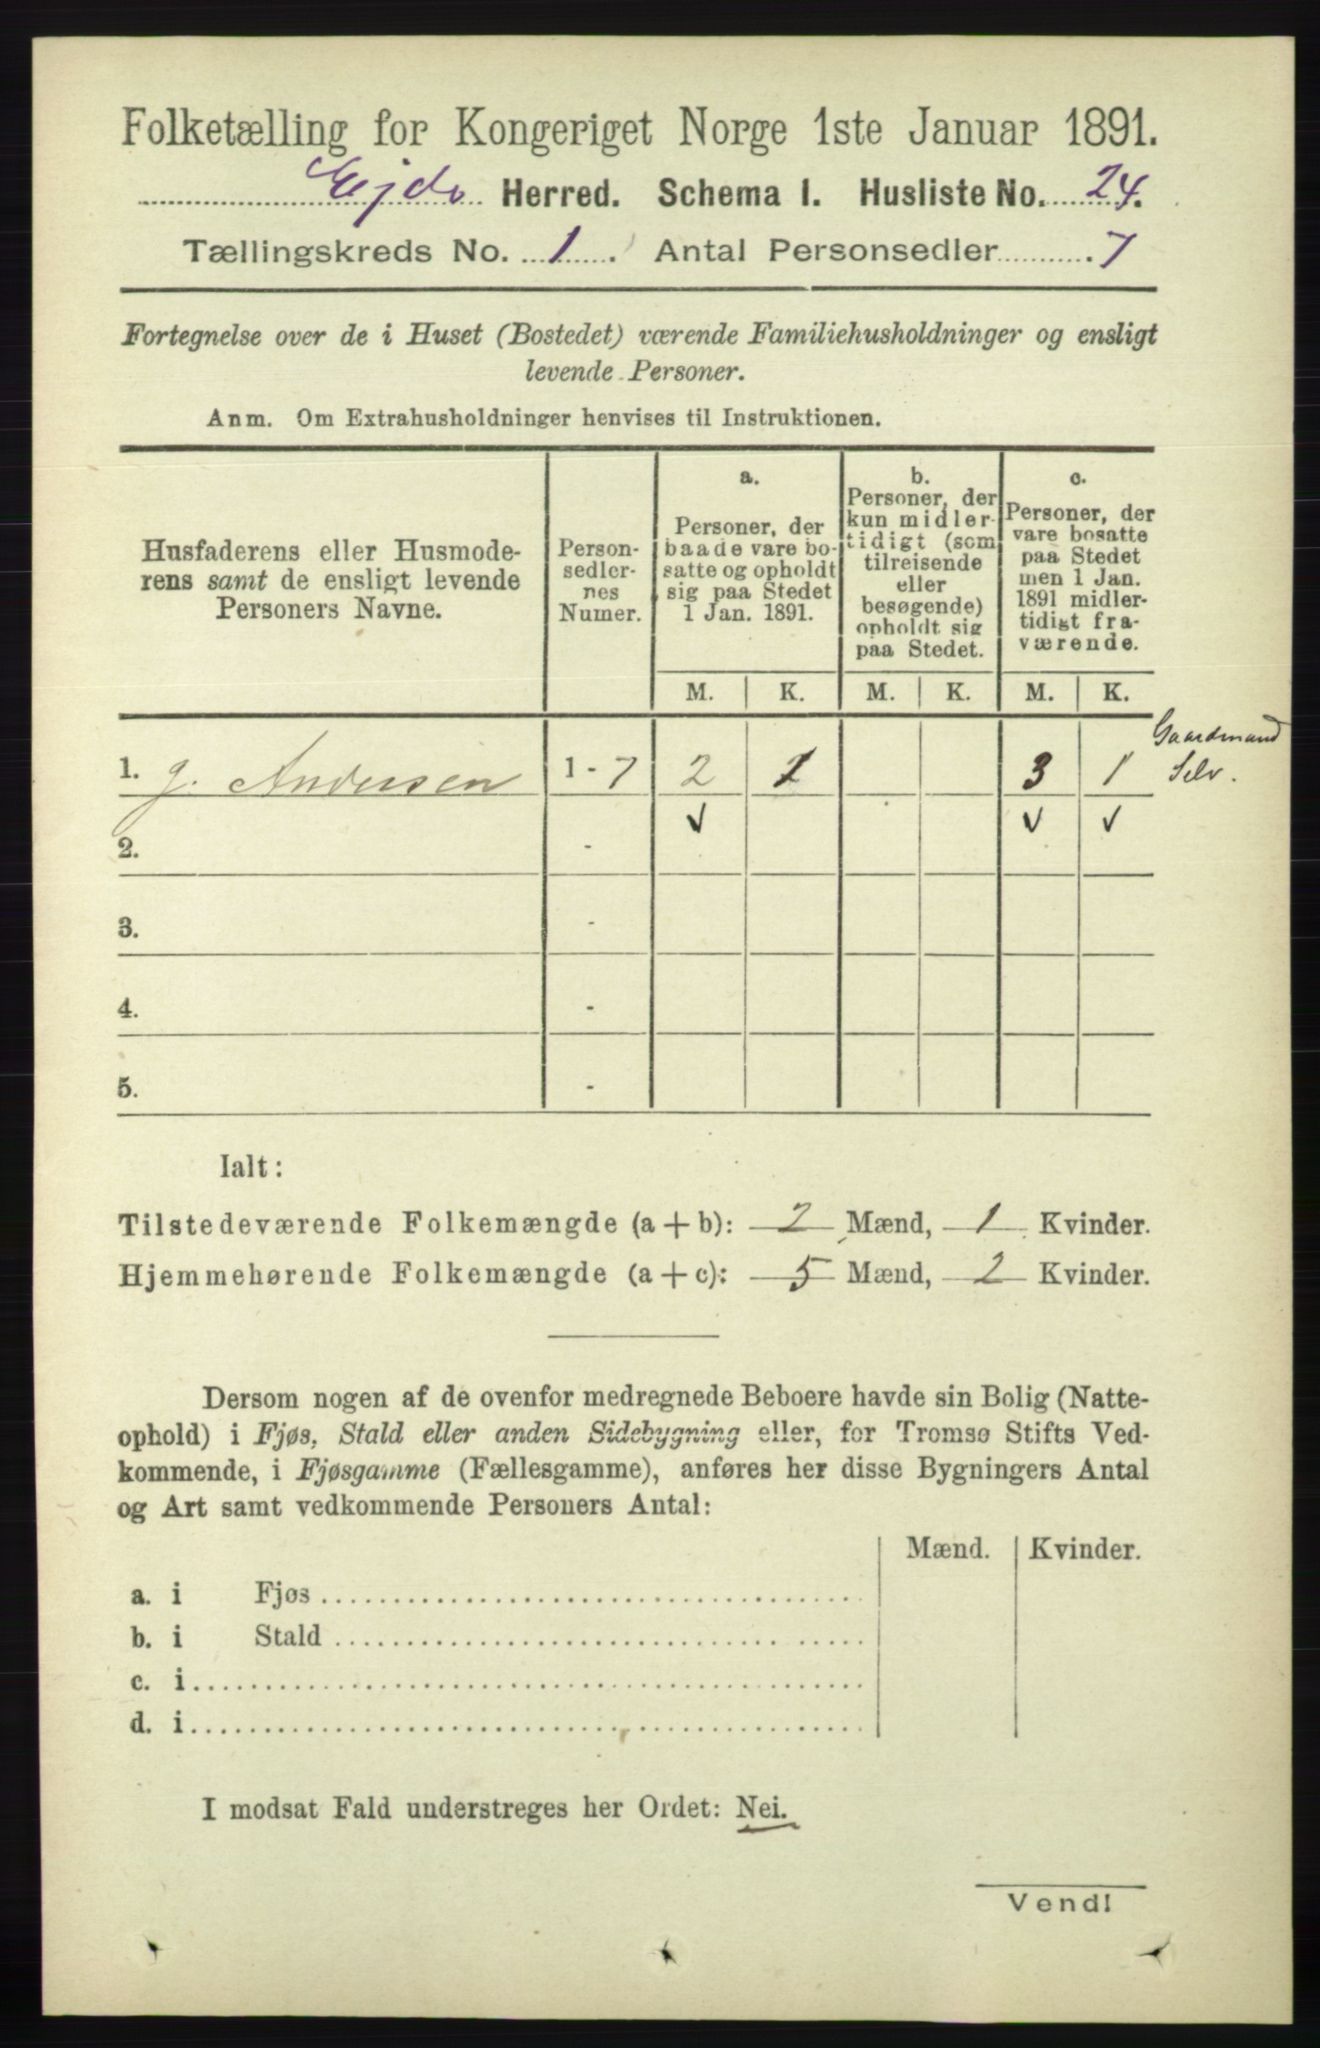 Folketælling for Kongeriget Norge 1ste Januar 1891.
Ejds Herred. Schema I. Husliste No. 24.
Tællingskreds No. 1. Antal Personsedler 7
Fortegnelse over de i Huset (Bostedet) værende Familiehusholdninger og ensligt
levende Personer.
Anm. Om Extrahusholdninger henvises til Instruktionen.
Husfaderens eller Husmode-
rens samt de ensligt levende
Personers Navne.
Person-
sedler-
nes
Numer.
a.
Personer, der
baade vare bo-
satte og opholdt
sig paa Stedet
1 Jan. 1891.
b.
Personer, der
kun midler-
tidigt (som
tilreisende
eller
besøgende)
opholdt sig
paa Stedet.
c.
Personer, der
vare bosatte
paa Stedet
men 1 Jan.
1891 midler-
tidigt fra-
værende.
M. K. M. K. M. K.
1. J. Andersen 1 - 7 2 1 3 1 Gaardmand
Selv.
✓ ✓ ✓
2. -
3. -
4. -
5. -
Ialt:
Tilstedeværende Folkemængde (a + b): 2 Mænd, 1 Kvinder.
Hjemmehørende Folkemængde (a + c): 5 Mænd, 2 Kvinder.
Dersom nogen af de ovenfor medregnede Beboere havde sin Bolig (Natte-
ophold) i Fjøs, Stald eller anden Sidebygning eller, for Tromsø Stifts Ved-
kommende, i Fjøsgamme (Fællesgamme), anføres her disse Bygningers Antal
og Art samt vedkommende Personers Antal:
Mænd. Kvinder.
a. i Fjøs
b. i Stald
c. i
d. i
I modsat Fald understreges her Ordet: Nei.
Vend!